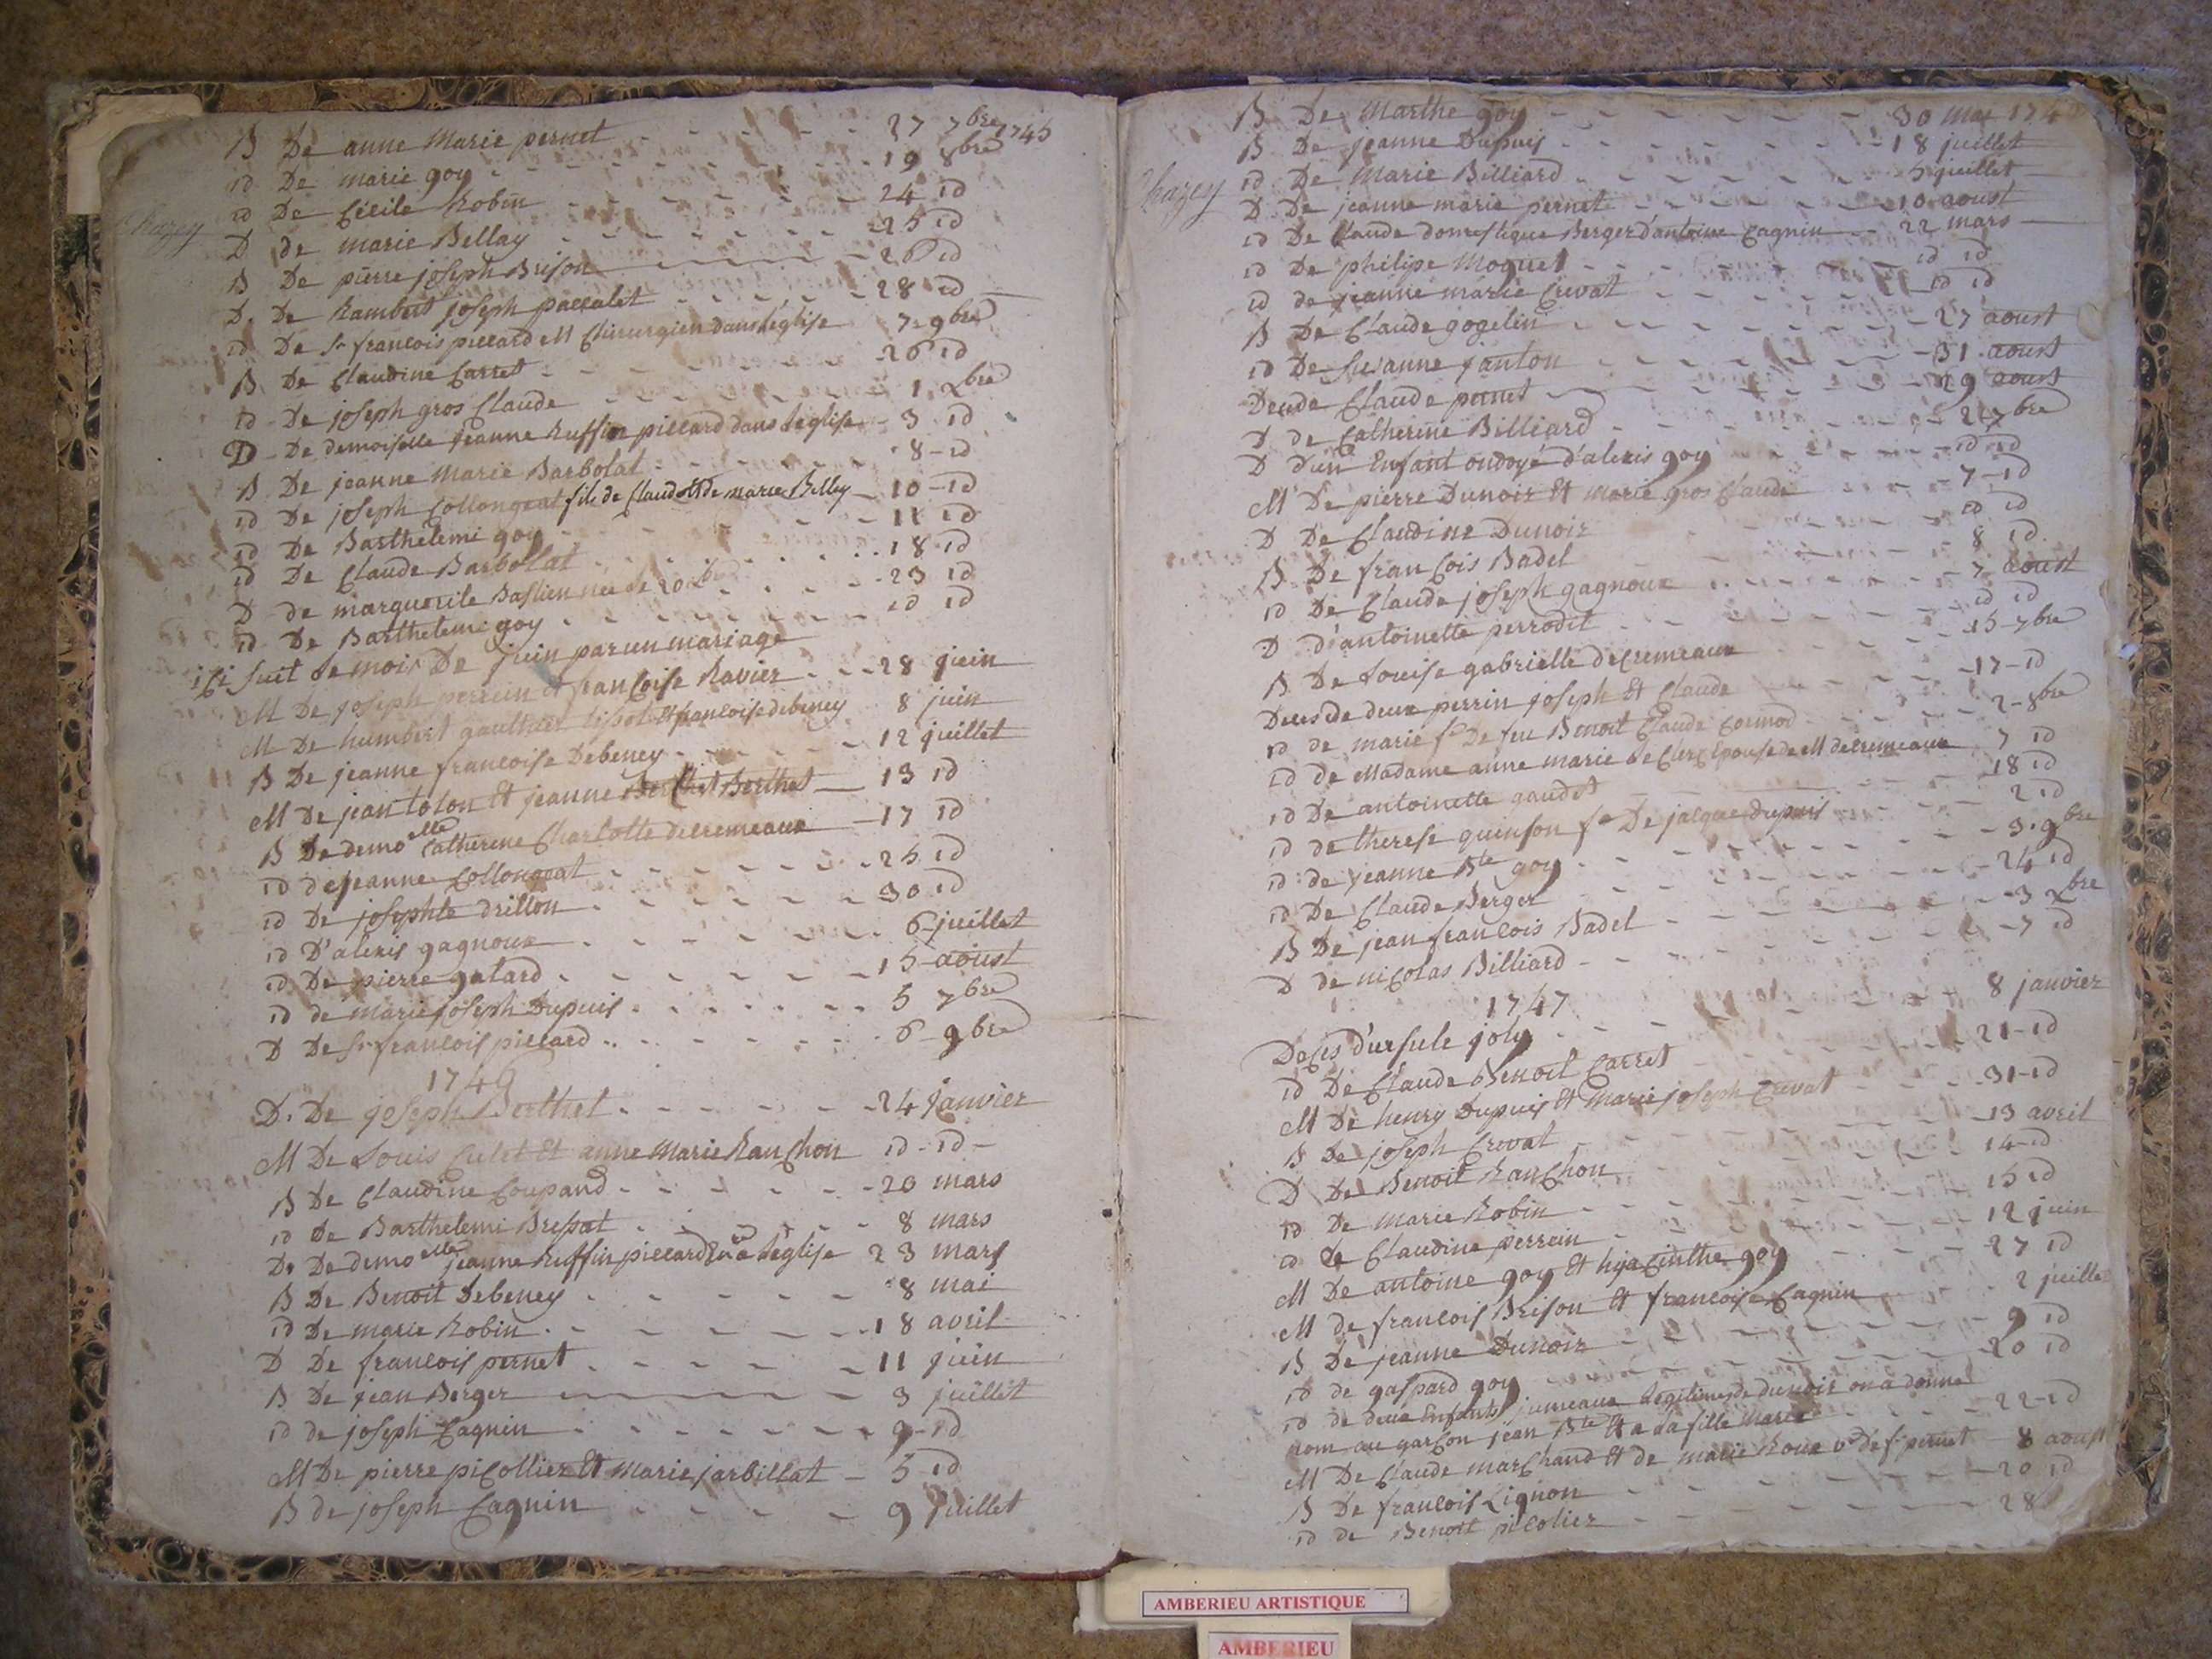 B De anne Marie pernet - - - - - - 27 7bre 1745
id De marie goy - - - - - - 19 8bre
id De Cécile Robin - - - - - - 24 id
Chazey
D de marie Bellay - - - - - - 25 id
B De pierre joseph Brison - - - - - - 26 id
D. De Rambert joseph paccalet - - - - - - 28 id
id De Sr francois piccard M Chirurgien dans léglise 7 9bre
B De Claudine Carret - - - - - - 26 id
id De joseph gros Claude - - - - - - 1 xbre
D De demoiselle jeanne Ruffine piccard dans léglise - 3 id
B De jeanne Marie Barbolat - - - - - - 8 id
id De joseph Collongeat fils de Claude et de marie Belley 10 id
id De Barthelemi goy - - - - - - 11 id
id De Claude Barbolat - - - - - - 18 id
D de marguerite Bastien née le 20 - - - - 23 id
id De Barthelemi goy - - - - - - id id
ici suit le mois De juin par un mariage
M De joseph perrein et francoise Ravier - - - 28 juin
M De humbert gauthier tissot et francoise debeney 8 juin
B De jeanne francoise Debeney - - - - - 12 juillet
M De jean tolon Et jeanne Berthet Berthet 13 id
B De demoelle Catherine Charlotte decremeaux 17 id
id de jeanne Collongeat - - - - - - 25 id
id De josephte drillon - - - - - - 30 id
id D'alexis gagnoux - - - - - - 6 juillet
id De pierre galard - - - - - - 15 aoust
id de marie joseph Dupuis - - - - - - 5 7bre
D De Sr francois piccard - - - - - - 6 9bre
1746
D. De joseph Berthet - - - - - - 24 janvier
M De Louis Culet Et anne Marie RanChon id - id -
B De Claudine Coupand - - - - - - 20 mars
id De Barthelemi Bressat - - - - - - 8 mars
D. De demoelle jeanne Ruffin piccard léglise 23 mars
B De Benoit Debeney - - - - - - 8 mai
id De marie Robin - - - - - - 18 avril
D De francois pernet - - - - - - 11 juin
B De jean Berger - - - - - - 3 juillet
id de joseph Cagnin - - - - - - 9 id
M De pierre piCollier Et Marie jarbillat - 5 id
B de joseph Cagnin - - - - - - 9 juillet
B De Marthe goy - - - - - - 30 mai 174
B De jeanne Dupuis - - - - - - 18 juillet
Chazey
id De Marie Billiard - - - - - - 5 juillet
D De jeanne marie pernet - - - - - - 10 aoust
id De Claude domestique Berger d'antoine Cagnin - 22 mars
id De philipe Moguet - - - - - - id id
id de jeanne marie Crevat - - - - - - id id
B De Claude gogelin - - - - - - 27 aoust
id De Susanne janton - - - - - - 31 aoust
Deude Claude pernet - - - - - - 29 aoust
D de Catherine Billiard - - - - - - 2 7bre
D d'un Enfant ondoyé d'alexis goy - - - - id id
M De pierre Dunoir Et marie gros Claude - - - 7 id
D De Claudine Dunoir - - - - - - id id
B De francois Badel - - - - - - 8 id
id De Claude joseph gagnoux - - - - - - 7 aoust
D D'antoinette perrodit - - - - - - id id
B De Louise gabrielle decremeaux - - - 15 7bre
Deces de deux perrin joseph Et Claude - - - 17 id
id de marie fe De feu Benoit Claude Cormod - - - 2 8bre
id de Madame anne marie de Clerc Epouse de M decremeaux 7 id
id De antoinette gaudet - - - - - - 18 id
id de therese quinson fe De jacque dupuis - - - 2 id
id de jeanne Bte goy - - - - - - 3 9bre
id De Claude Berger - - - - - - 24 id
B De jean francois Badel - - - - - - 3 xbre
D de niColas Billiard - - - - - - 7 id
1747
Deces d'ursule joly - - - - - - 8 janvier
id De Claude Benoit Carret - - - - - - 21 id
M De henry Dupuis Et Marie joseph Crevat - - - 31 id
B De joseph Crevat - - - - - - 13 avril
D De Benoit RanChon - - - - - - 14 id
id De Marie Robin - - - - - - 15 id
id de Claudine perrein - - - - - - 12 juin
M De antoine goy Et hyaCinthe goy - - - 27 id
M de francois Brison Et francoise Cagnin - - - 2 juillet
B De jeanne Dunoir - - - - - - 9 id
id de gaspard goy - - - - - - 20 id
id de deux Enfants jumeaux légitimes de dunoir on a donné
nom au garCon jean Bte Et a la fille Marie - - - 22 id
M De Claude MarChand Et de marie Roux ve de fs pernet 8 aoust
B De francois Lignon - - - - - - 20 id
id de Benoit piColier - - - - - - 28
AMBERIEU ARTISTIQUE
AMBERIEU